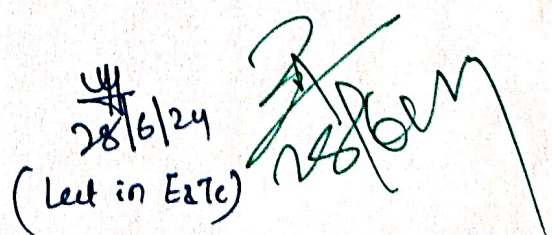 28/6/24
(Lect in E&Tc)
28/6/24